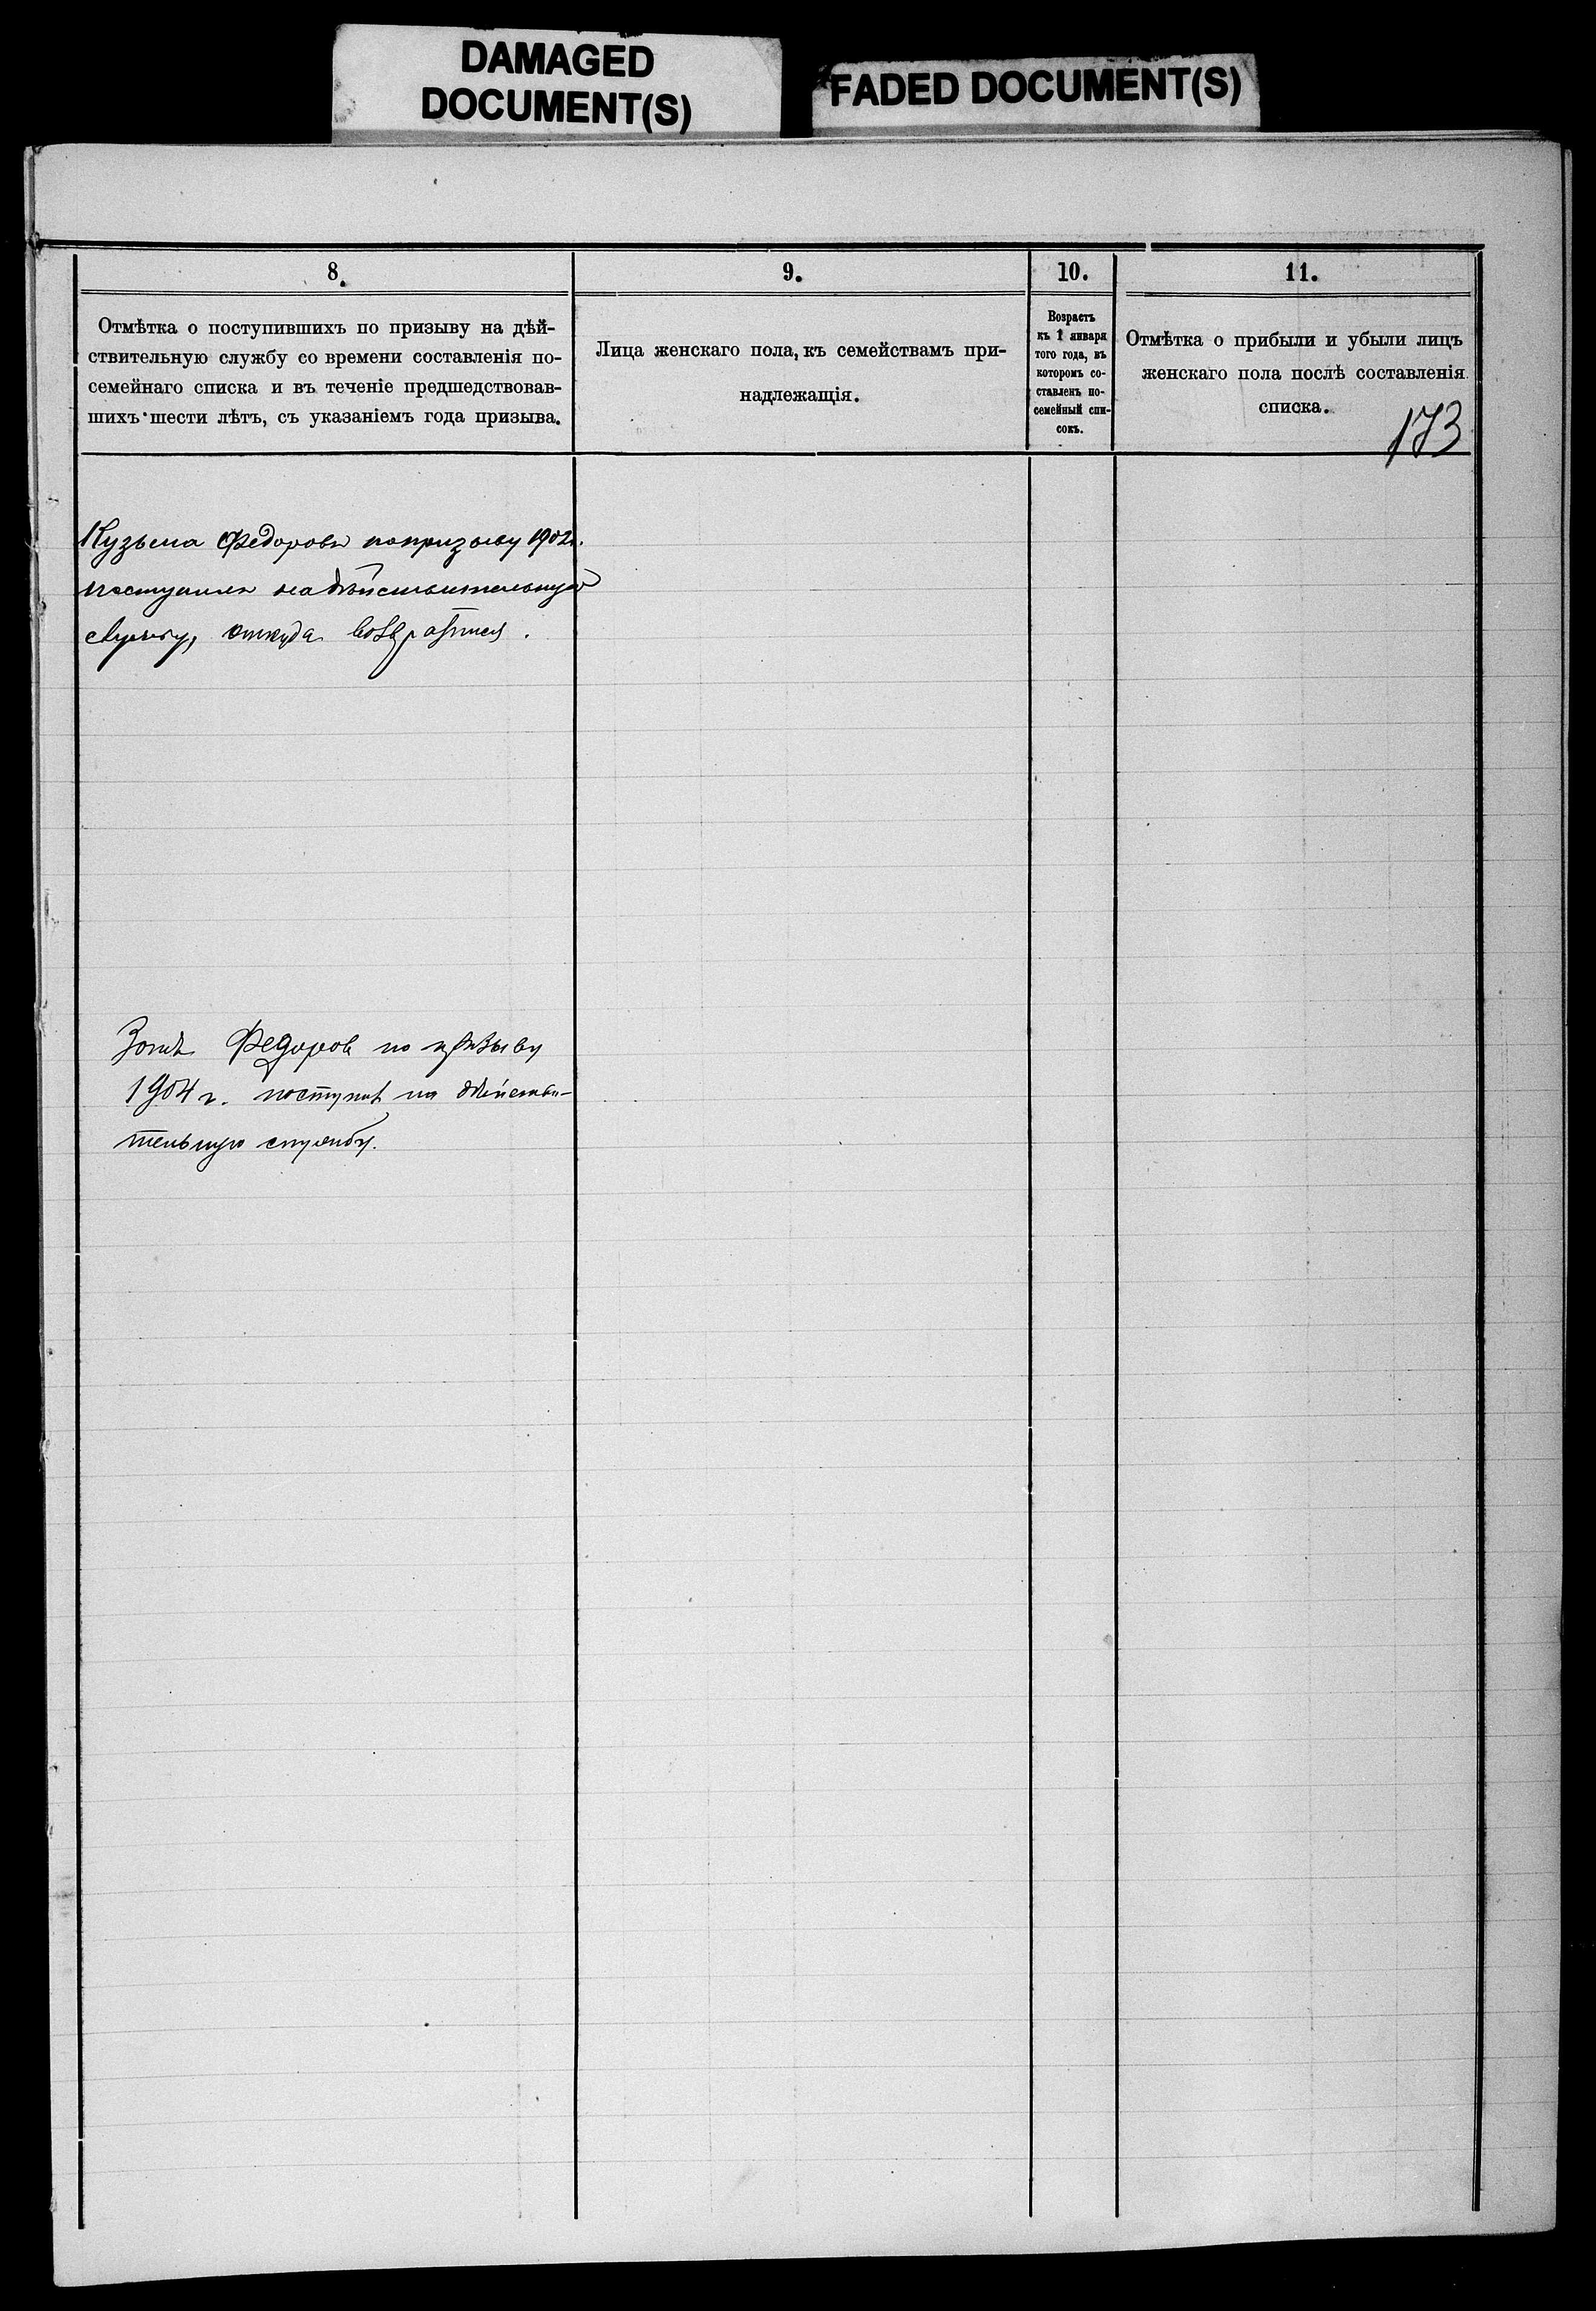 DAMAGED
DOCUMENT(S)
FADED DOCUMENT(S)
8.
Отмѣтка о поступившихъ по призыву на дѣй-
ствительную службу со времени составленія по-
семейнаго списка и въ теченіе предшедствовав-
шихъ шести лѣтъ, съ указаніемъ года призыва.
9.
Лица женскаго пола, къ семействамъ при-
надлежащія.
10.
Возрастъ
къ 1 января
того года, въ
которомъ со-
ставленъ по-
семейный спи-
сокъ.
11.
Отмѣтка о прибыли и убыли лицъ
женскаго пола послѣ составленія
списка.
173
Кузьма Федоровъ по призыву 1902 г.
поступилъ на дѣйствительную
службу, откуда возвратился.
Федоров по призыву
1904 г. поступил на дѣйстви-
тельную службу.